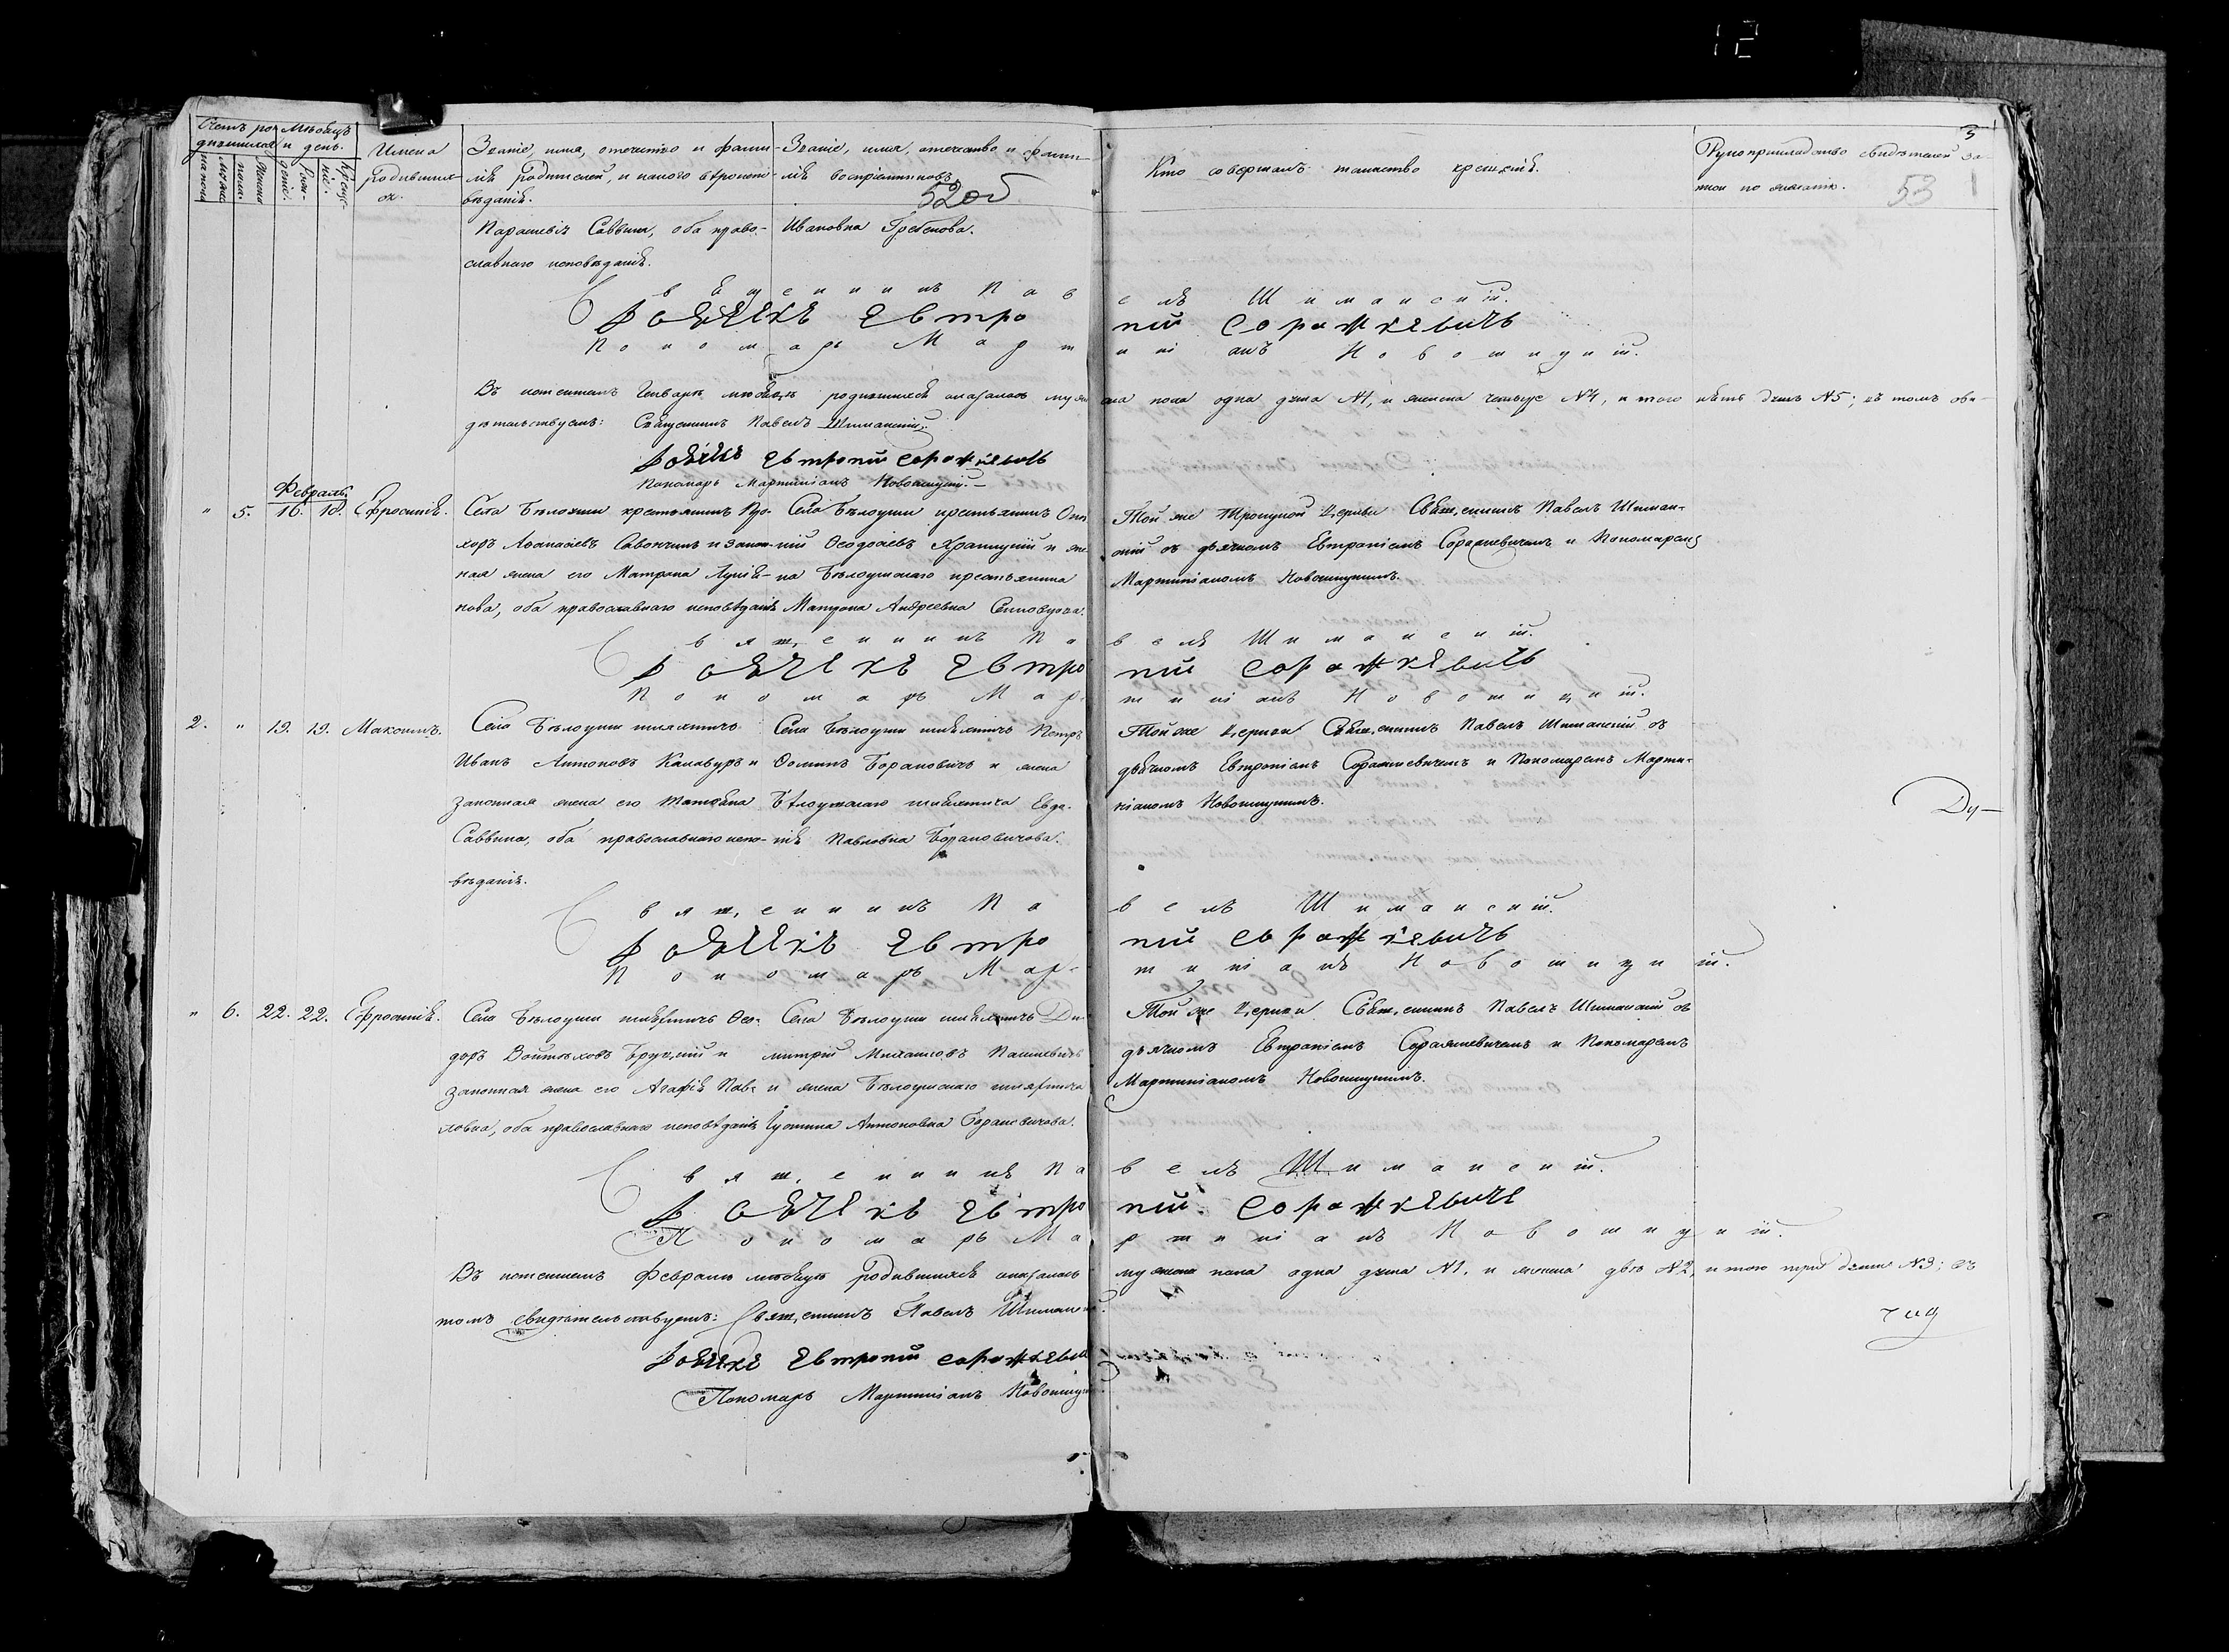 12
Счетъ ро-
дившихся
Мѣсяцъ
и день.
Имена
родивших-
ся.
Званіе, имя, отчество и фами-
лія родителей, и какого вѣроиспо-
вѣданія.
Званіе, имя, отчество и фами-
лія воспріемниковъ
52об
Кто совершалъ таинство крещенія.
Рукоприкладство свидѣтелей за-
писи по желанію.
53
3
Параскевія Саввина, оба право-
славнаго исповѣданія.
Ивановна Гребенова.
Священникъ Павелъ Шиманскій.
Дьячекъ Евтропій Сорожкевичь
Пономарь Мартиніанъ Новошицкій.
Въ истекшемъ Генварѣ мѣсяцѣ родившихся оказалось мужеска пола одна душа №1, и женска четыре №4, итого пять душъ №5; въ томъ сви-
дѣтельствуемъ: Священникъ Павелъ Шиманскій.
Дьячекъ Евтропій Сорожкевичь
Пономарь Мартиніанъ Новошицкій.
Февраль.
" 5. 16. 18. Ефросинія.
Села Бѣлоуши крестьянинъ Про-
хоръ Аѳанасіевъ Савончикъ и закон-
ная жена его Матрона Лукія-
нова, оба православнаго исповѣданія
Села Бѣлоуши крестьянинъ Они-
сій Ѳеодосіевъ Храпицкій и же-
на Бѣлоушскаго крестьянина
Матрона Андреевна
Той же Троицкой Церкви Священникъ Павелъ Шиман-
скій съ дьячкомъ Евтропіемъ Сорожкевичемъ и Пономаремъ
Мартиніаномъ Новошицкимъ.
Священникъ Павелъ Шиманскій.
Дьячекъ Евтропій Сорожкевичь
Пономарь Мартиніанъ Новошицкій.
2. " 19. 19. Максимъ.
Села Бѣлоуши шляхтичъ
Иванъ Антоновъ Калавуръ и
законная жена его Татіана
Саввина, оба православнаго испо-
вѣданія.
Села Бѣлоуши шляхтичъ Петръ
Ѳоминъ Борановичъ и жена
Бѣлоушскаго шляхтича Евдо-
кія Павловна Борановичова.
Той же Церкви Священникъ Павелъ Шиманскій съ
дьячкомъ Евтропіемъ Сорожкевичемъ и Пономаремъ Марти-
ніаномъ Новошицкимъ.
Ду-
Священникъ Павелъ Шиманскій.
Дьячекъ Евтропій Сорожкевичь
Пономарь Мартиніанъ Новошицкій.
" 6. 22. 22. Ефросинія.
Села Бѣлоуши шляхтичъ Ѳео-
доръ Войтѣховъ Бруцкій и
законная жена его Агафія Пав-
ловна, оба православнаго исповѣданія
Села Бѣлоуши шляхтичъ Ди-
митрій Михаиловъ Пашкевичъ
и жена Бѣлоушскаго шляхтича
Іустина Антоновна Борановичова.
Той же Церкви Священникъ Павелъ Шиманскій съ
дьячкомъ Евтропіемъ Сорожкевичемъ и Пономаремъ
Мартиніаномъ Новошицкимъ.
Священникъ Павелъ Шиманскій.
Дьячекъ Евтропій Сорожкевичь
Пономарь Мартиніанъ Новошицкій.
Въ истекшемъ Февралѣ мѣсяцѣ родившихся оказалось мужеска пола одна душа №1, и женска двѣ №2, итого три души №3; въ
томъ свидѣтельствуемъ: Священникъ Павелъ Шиманскій.
Дьячекъ Евтропій Сорожкевичь
Пономарь Мартиніанъ Новошицкій